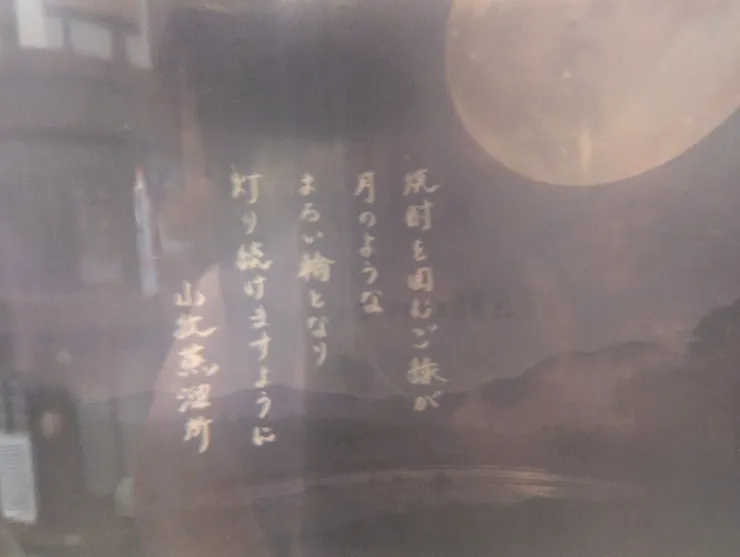 焼酎を囲むご縁が
月のような
まろい輪となり
灯り続けますように
蒸溜所